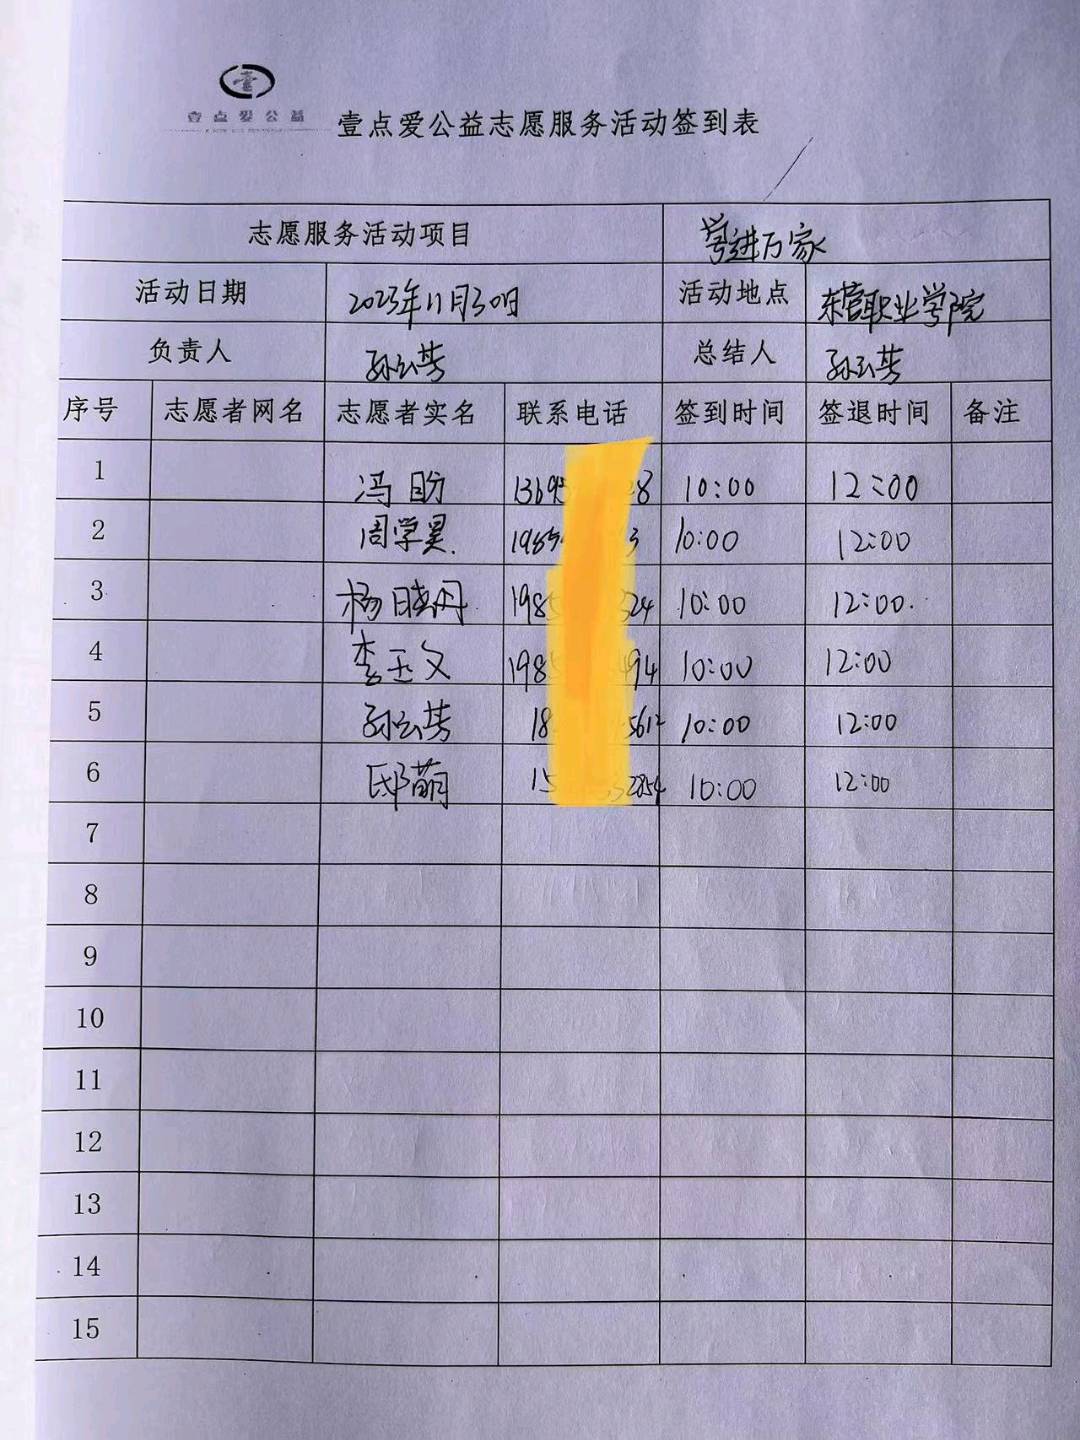 壹点爱公益
壹点爱公益志愿服务活动签到表
志愿服务活动项目 学进万家
活动日期 2023年11月30日 活动地点 东营职业学院
负责人 孙云芳 总结人 孙云芳
序号 志愿者网名 志愿者实名 联系电话 签到时间 签退时间 备注
1 冯盼 1369 28 10:00 12:00
2 周学昊 1985 3 10:00 12:00
3 杨晓丹 1985 324 10:00 12:00
4 李玉文 1985 494 10:00 12:00
5 孙云芳 18 5612 10:00 12:00
6 邸萌 15 2854 10:00 12:00
7
8
9
10
11
12
13
14
15